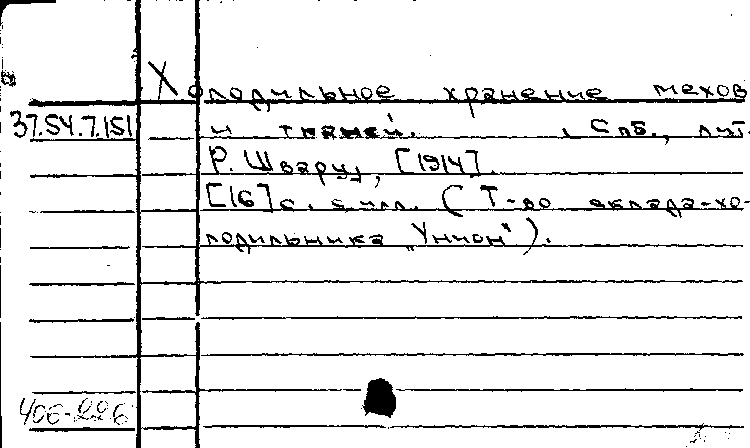 Холодильное хранение мехов
37.54.7.151 и тканей. , Спб., лит.
Р. Шварц, [1914].
[16] с. с илл. (Т-во склада-хо-
лодильника „Унион").
406-226